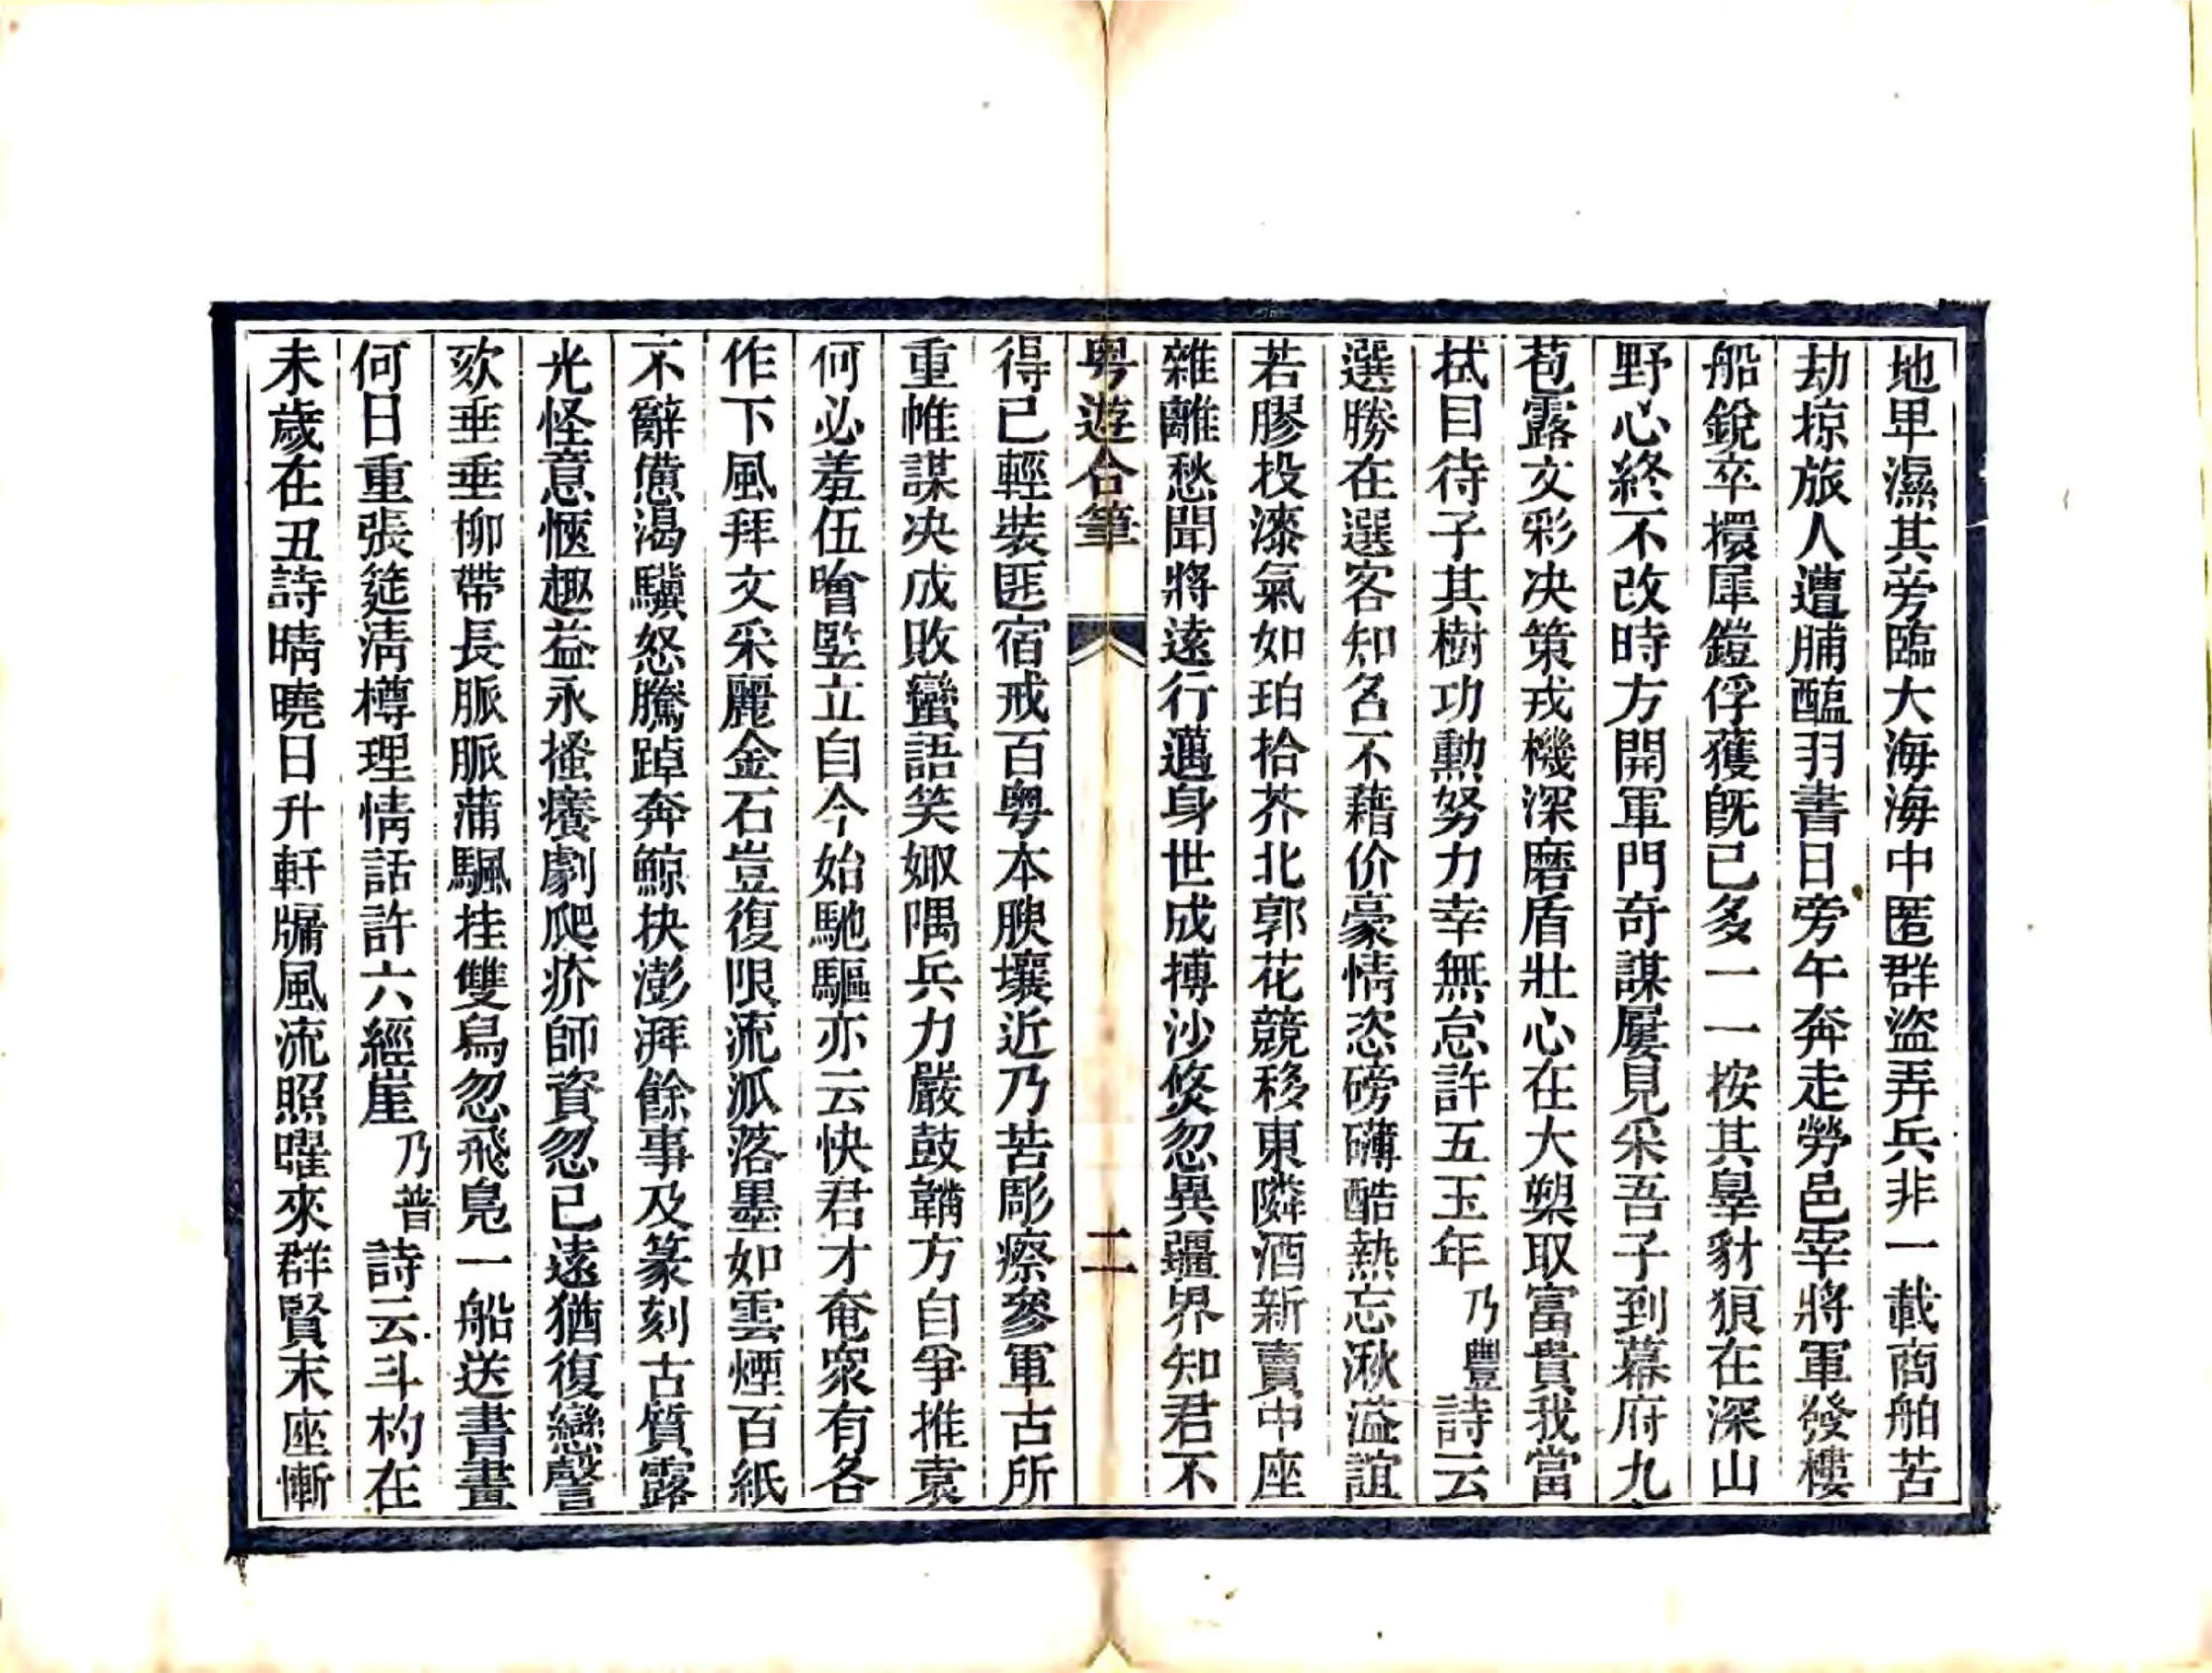 地卑濕其旁臨大海海中匿群盜弄兵非一載商舶苦
劫掠旅人遭脯醢羽書日旁午奔走勞邑宰將軍發樓
船銳卒擐犀鎧俘獲旣已多一一按其辠豺狼在深山
野心終不改時方開軍門奇謀屢見采吾子到幕府九
苞露文彩决策戎機深磨盾壯心在大槊取富貴我當
拭目待子其樹功勳努力幸無怠許五玉年乃豐詩云
選勝在選客知名不藉价豪情恣磅礴酷熱忘湫溢誼
若膠投漆氣如珀拾芥北郭花競移東隣酒新賣中座
雜離愁聞將遠行邁身世成摶沙倐忽異疆界知君不
粤遊合筆 二
得已輕裝匪宿戒百粤本腴壤近乃苦彫瘵參軍古所
重帷謀决成敗蠻語笑娵隅兵力嚴鼓鞴方自爭推袁
何必羞伍噲豎立自今始馳驅亦云快君才奄衆有各
作下風拜文采麗金石豈復限流派落墨如雲煙百紙
不辭憊渴驥怒騰踔奔鯨抉澎湃餘事及篆刻古質露
光怪意愜趣益永搔癢劇爬疥師資忽已遠猶復戀謦
欬垂垂柳帶長脈脈蒲颿挂雙鳥忽飛鳧一船送書畫
何日重張筵淸樽理情話許六經崖乃普詩云斗杓在
未歲在丑詩晴曉日升軒牖風流照曜來群賢末座慚